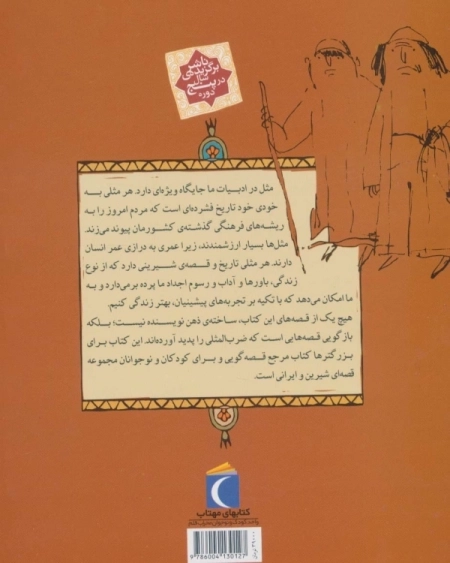 ناشر
برگزیده‌ی
سال
در پنج
دوره
مثل در ادبیات ما جایگاه ویژه‌ای دارد. هر مثلی به
خودی خود تاریخ فشرده‌ای است که مردم امروز را به
ریشه‌های فرهنگی گذشته‌ی کشورمان پیوند می‌زند.
مثل‌ها بسیار ارزشمندند، زیرا عمری به درازی عمر انسان
دارند. هر مثلی تاریخ و قصه‌ی شیرینی دارد که از نوع
زندگی، باورها و آداب و رسوم اجداد ما پرده برمی‌دارد و به
ما امکان می‌دهد که با تکیه بر تجربه‌های پیشینیان، بهتر زندگی کنیم.
هیچ یک از قصه‌های این کتاب، ساخته‌ی ذهن نویسنده نیست؛ بلکه
بازگویی قصه‌هایی است که ضرب‌المثلی را پدید آورده‌اند. این کتاب برای
بزرگترها کتاب مرجع قصه‌گویی و برای کودکان و نوجوانان مجموعه
قصه‌ای شیرین و ایرانی است.
کتابهای مهتاب
9 786004 130127